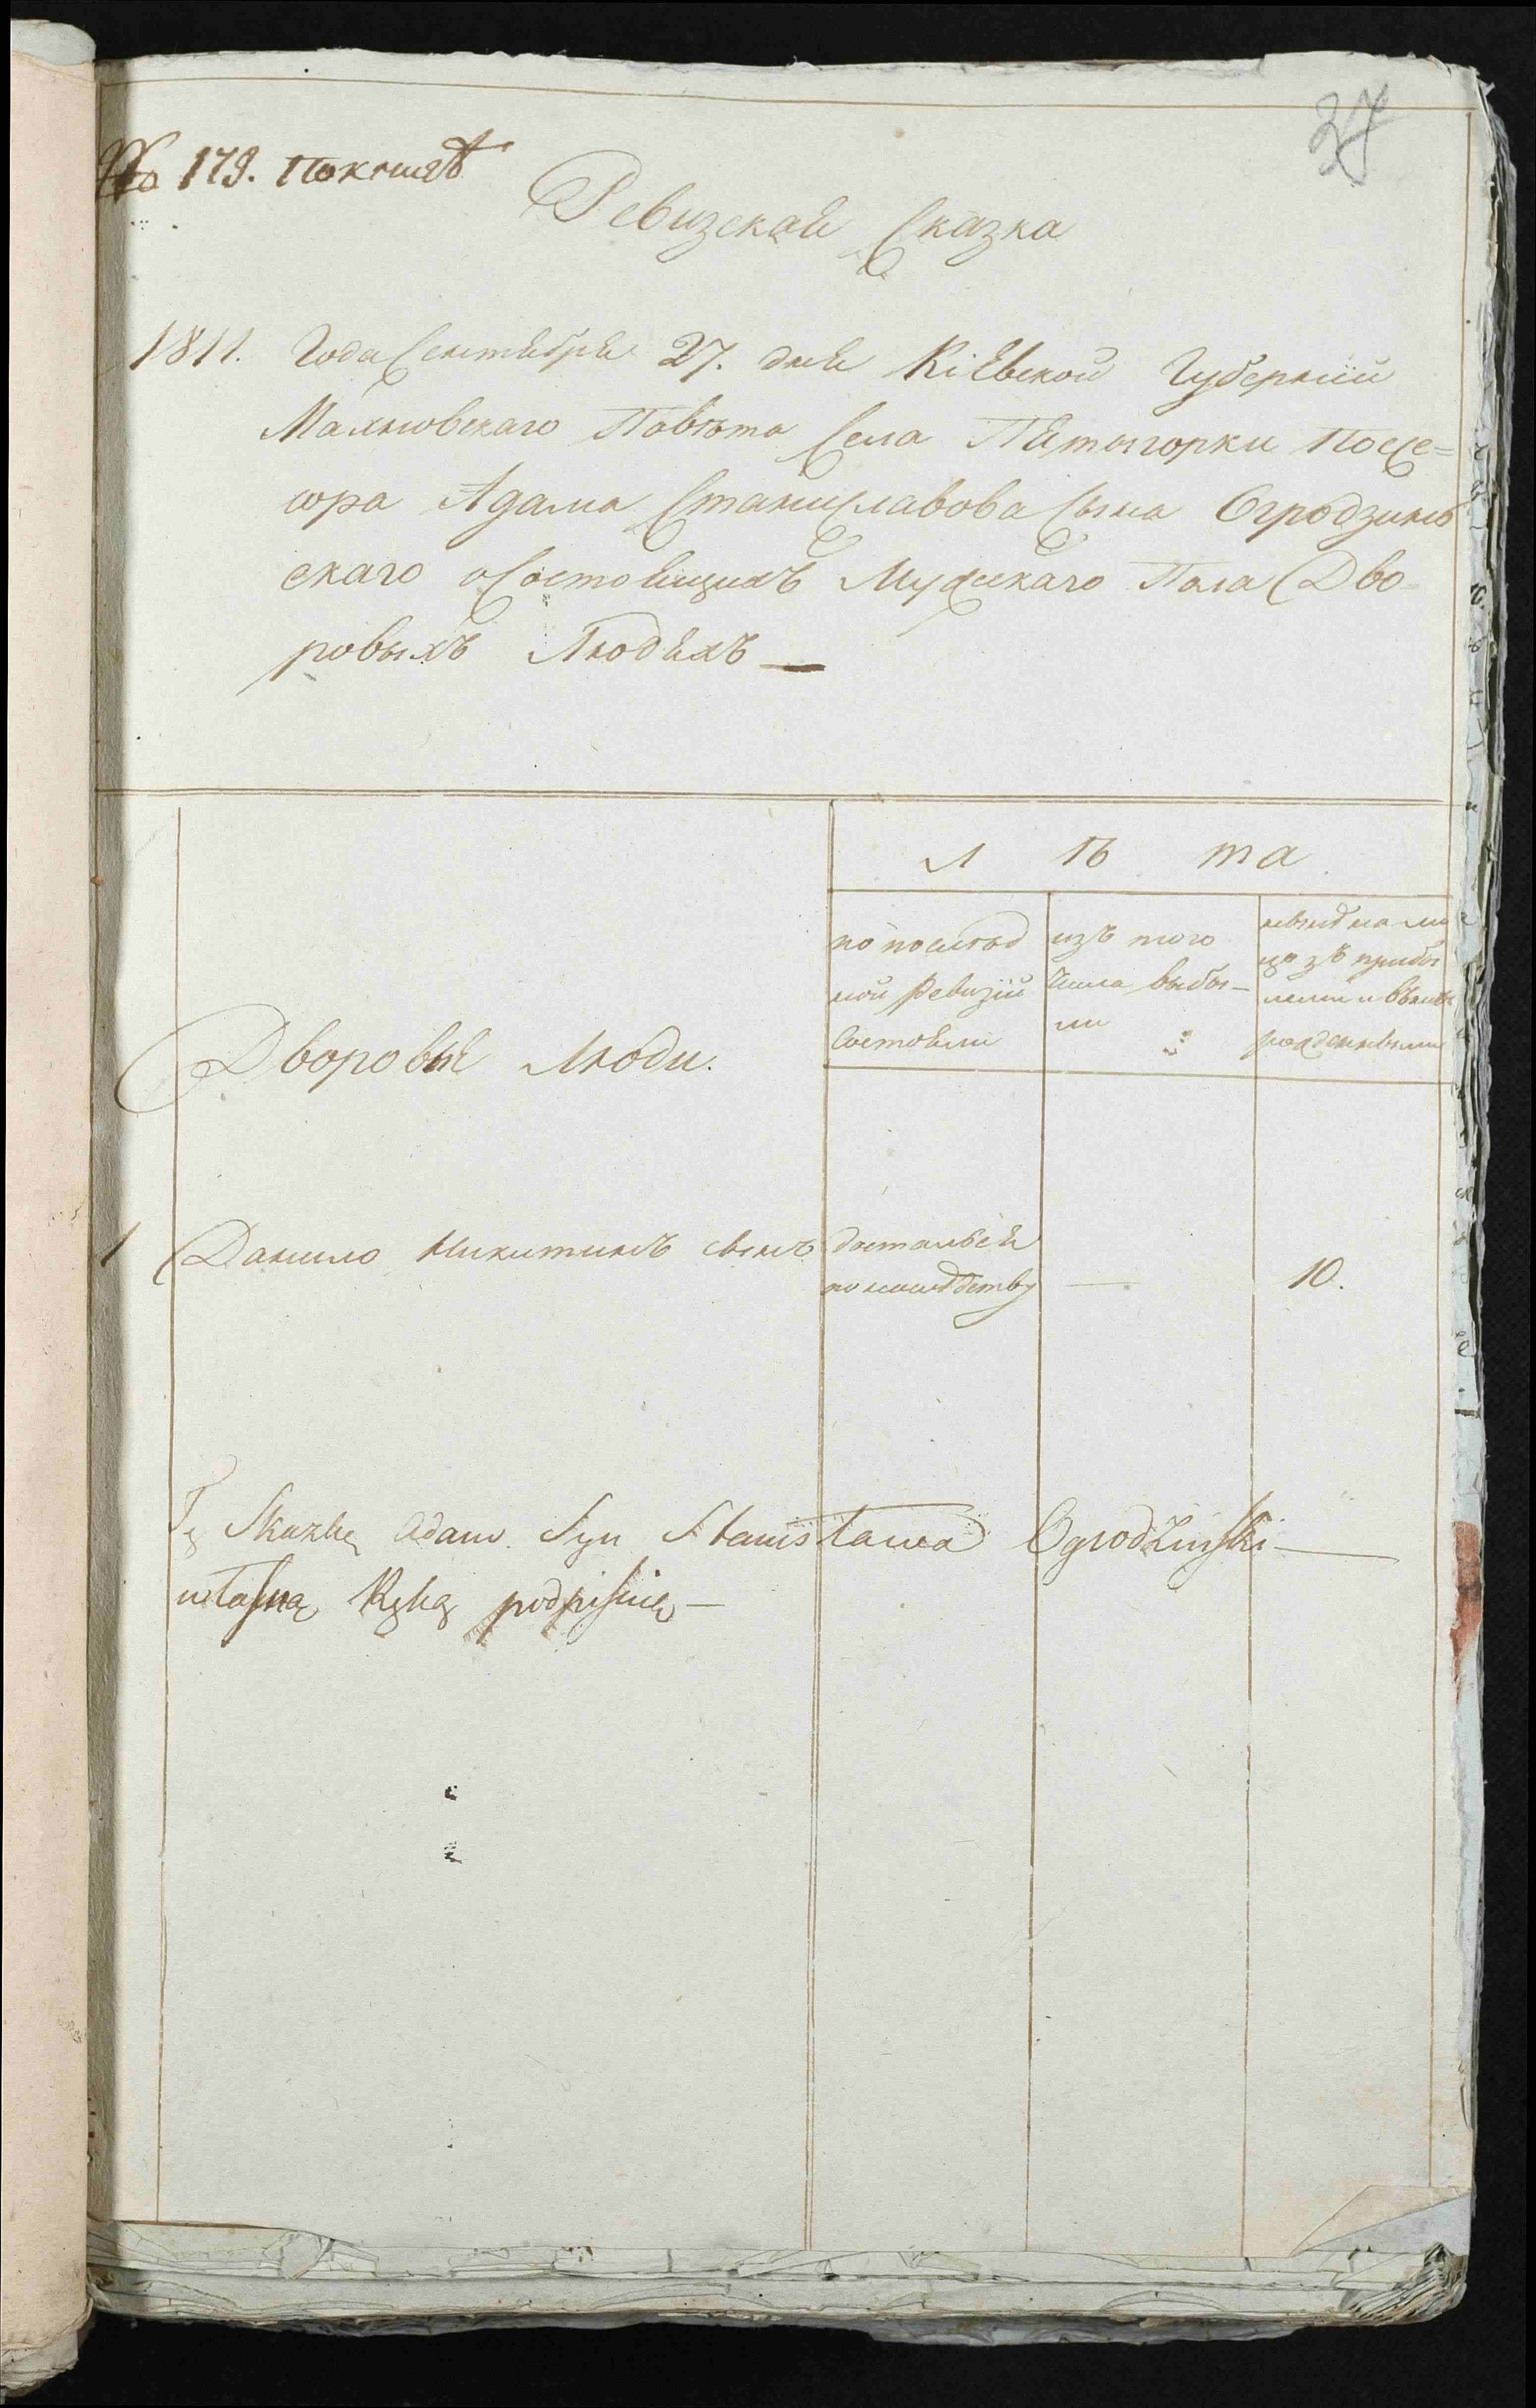 37
№ 179.
Ревизская Сказка
1811. Года Сентября 27. дня Кіевской Губерніи
Махновскаго Повѣта Села Пятыгорки Поссе=
сора Адама Станиславова Сына Огродзинь
скаго о Состоящихъ Мужескаго Пола Дво-
ровыхъ Людяхъ —
Л ѣ та
по послѣд
ной Ревизіи
Состояли
изъ того
Числа выбы-
ли
нынѣ на ли
цо зъ прибы
лыми и вънов
рожденными
Дворовые Люди.
1 Данило Никитинъ сынъ
достався
по наслѣдству
—
10.
Tę Skazkę Adam Syn Stanisława Ogrodzinski —
własną Ręką podpisuię —